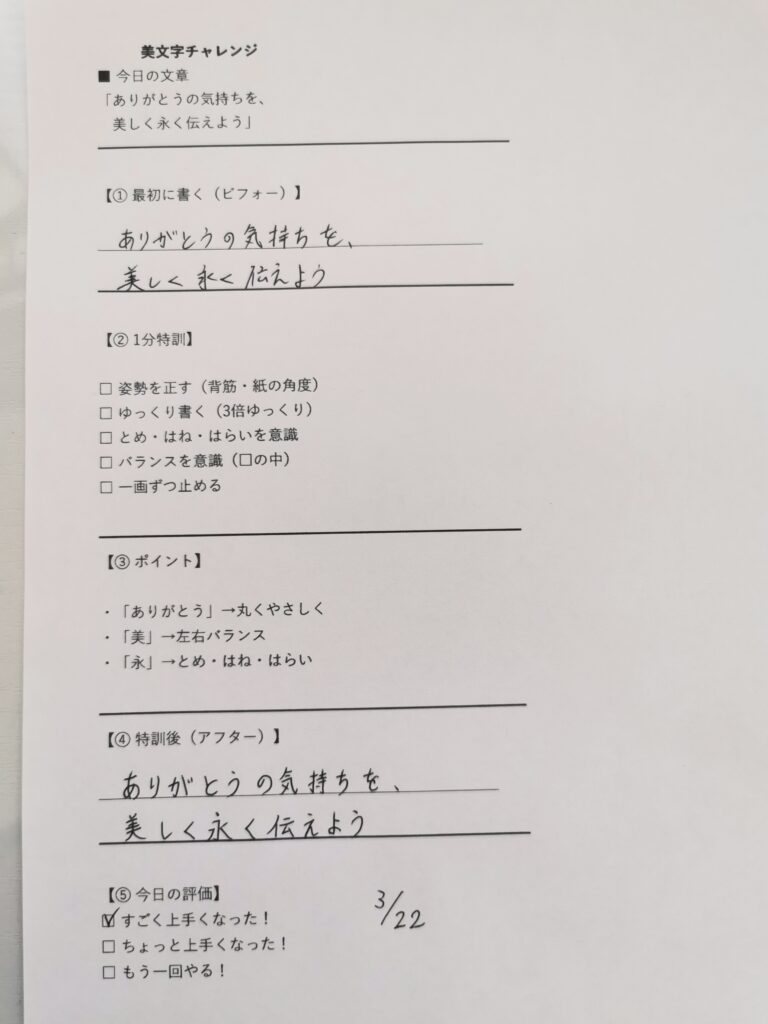 美文字チャレンジ
■ 今日の文章
「ありがとうの気持ちを、
美しく永く伝えよう」
【① 最初に書く（ビフォー）】
ありがとうの気持ちを、
美しく永く伝えよう
【② 1分特訓】
□ 姿勢を正す（背筋・紙の角度）
□ ゆっくり書く（3倍ゆっくり）
□ とめ・はね・はらいを意識
□ バランスを意識（口の中）
□ 一画ずつ止める
【③ ポイント】
・「ありがとう」→丸くやさしく
・「美」→左右バランス
・「永」→とめ・はね・はらい
【④ 特訓後（アフター）】
ありがとうの気持ちを、
美しく永く伝えよう
【⑤ 今日の評価】
☑ すごく上手くなった！
□ ちょっと上手くなった！
□ もう一回やる！
3/22